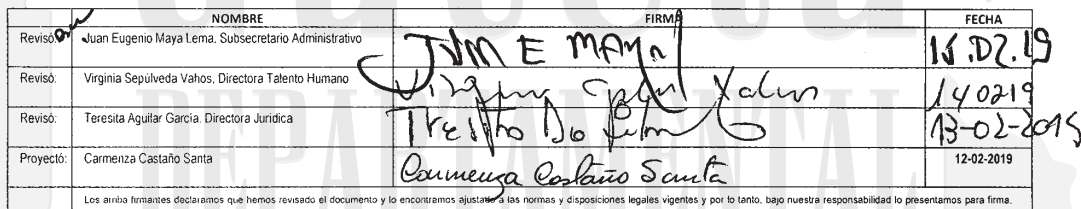 NOMBRE FIRMA FECHA
Revisó: Juan Eugenio Maya Lema. Subsecretario Administrativo JUAN E MAYA 15.02.19
Revisó: Virginia Sepúlveda Vahos, Directora Talento Humano Virginia Sepul Vahos 140219
Revisó: Teresita Aguilar García. Directora Jurídica 13-02-2019
Proyectó: Carmenza Castaño Santa Carmenza Castaño Santa 12-02-2019
Los arriba firmantes declaramos que hemos revisado el documento y lo encontramos ajustado a las normas y disposiciones legales vigentes y por lo tanto, bajo nuestra responsabilidad lo presentamos para firma.
DEPARTAMENTAL